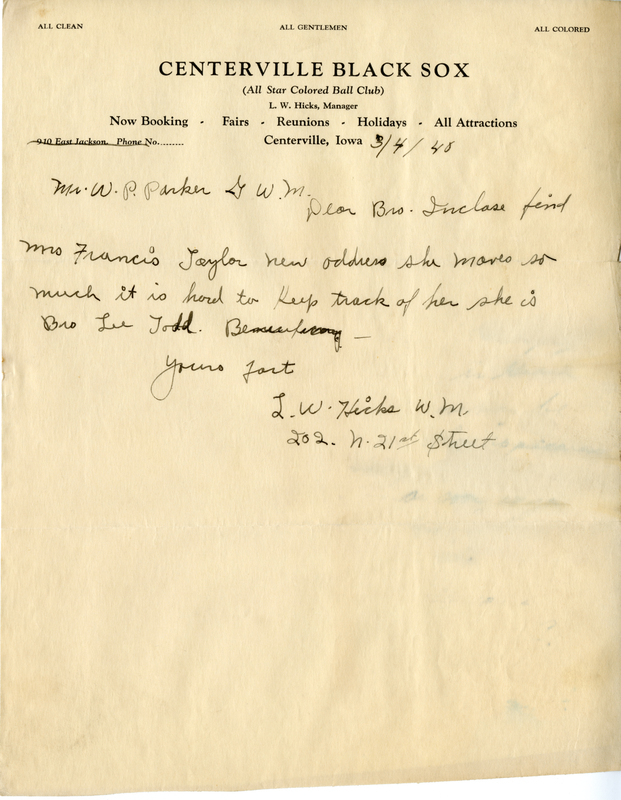 ALL CLEAN ALL GENTLEMEN ALL COLORED
CENTERVILLE BLACK SOX
(All Star Colored Ball Club)
L. W. Hicks, Manager
Now Booking - Fairs - Reunions - Holidays - All Attractions
910 East Jackson. Phone No......... Centerville, Iowa 3/4/40
Mr. W. P. Parker G W. M.
Dear Bro. Inclose find
Mrs Francis Taylor new address she moves so
much it is hard to keep track of her she is
Bro Lee Todd.
Yours fart
L. W. Hicks W. M
202. N. 21st Street